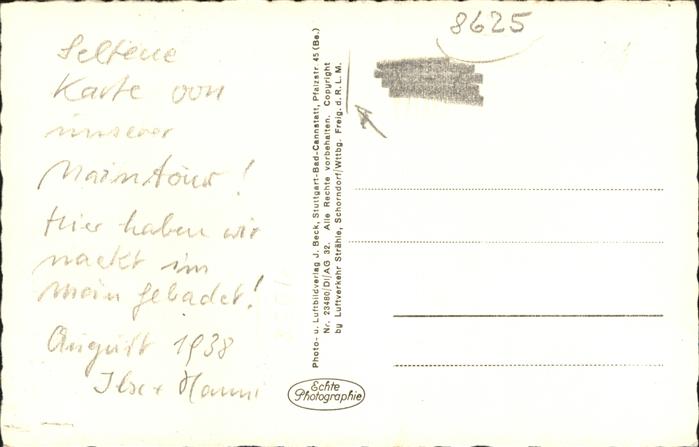 Seltene
Karte von
unserer
Maintour!
Hier haben wir
nackt im
Main gebadet!
August 1938
Ilse + Hanni
8625
Photo- u. Luftbildverlag J. Beck, Stuttgart-Bad-Cannstatt, Pfalzstr. 45 (Be.)
Nr. 23480/DI/AG 32. Alle Rechte vorbehalten. Copyright
by Luftverkehr Strähle, Schorndorf/Wttbg. Freig. d. R. L. M.
Echte
Photographie